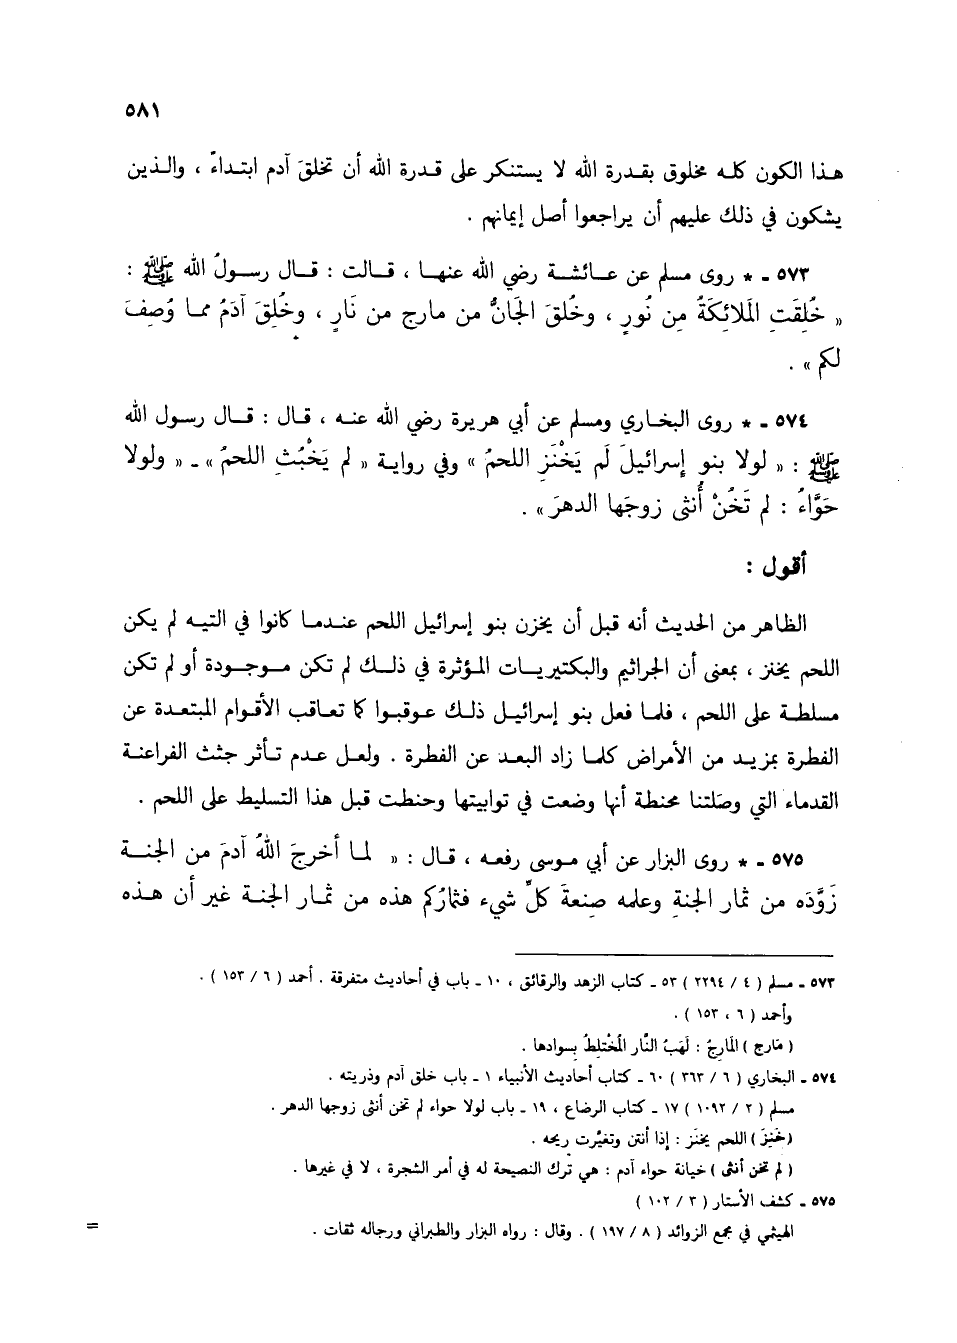 ٥٨١
هذا الكون كله مخلوق بقدرة الله لا يستنكر على قدرة الله أن تخلقَ آدم ابتداءً ، والذين
يشكون في ذلك عليهم أن يراجعوا أصل إيمانهم .
٥٧٣ ـ * روى مسلم عن عائشة رضي الله عنها ، قالت : قال رسولُ الله ﷺ :
« خُلِقَتِ المَلائِكَةُ مِن نُورٍ ، وخُلقَ الجَانُّ من مارجٍ من نَارٍ ، وخُلِقَ آدَمُ مما وُصِفَ
لكم » .
٥٧٤ ـ * روى البخاري ومسلم عن أبي هريرة رضي الله عنه ، قال : قال رسول الله
ﷺ : « لولا بنو إسرائيلَ لَم يَخْنَزِ اللحمُ » وفي رواية « لم يَخْبُثِ اللحمُ » ـ « ولولا
حَوَّاءُ : لم تَخُنْ أُنثى زوجَها الدهرَ » .
أقول :
الظاهر من الحديث أنه قبل أن يخزن بنو إسرائيل اللحم عندما كانوا في التيه لم يكن
اللحم يخنز ، بمعنى أن الجراثيم والبكتيريات المؤثرة في ذلك لم تكن موجودة أو لم تكن
مسلطة على اللحم ، فلما فعل بنو إسرائيل ذلك عوقبوا كما تعاقب الأقوام المبتعدة عن
الفطرة بمزيد من الأمراض كلما زاد البعد عن الفطرة . ولعل عدم تأثر جثث الفراعنة
القدماء التي وصلتنا محنطة أنها وضعت في توابيتها وحنطت قبل هذا التسليط على اللحم .
٥٧٥ ـ * روى البزار عن أبي موسى رفعه ، قال : « لما أخرجَ اللهُ آدمَ من الجنة
زَوَّدَه من ثمار الجنةِ وعلمه صِنعةَ كلِّ شيء فثمارُكم هذه من ثمار الجنة غير أن هذه
٥٧٣ ـ مسلم ( ٤ / ٢٢٩٤ ) ٥٣ ـ كتاب الزهد والرقائق ، ١٠ ـ باب في أحاديث متفرقة . أحمد ( ٦ / ١٥٣ ) .
وأحمد ( ٦ ، ١٥٣ ) .
( مَارج ) المَارِجُ : لَهَبُ النَّار المُخْتَلِطُ بِسوادها .
٥٧٤ ـ البخاري ( ٦ / ٣٦٣ ) ٦٠ ـ كتاب أحاديث الأنبياء ١ ـ باب خلق آدم وذريته .
مسلم ( ٢ / ١٠٩٢ ) ١٧ ـ كتاب الرضاع ، ١٩ ـ باب لولا حواء لم تخن أنثى زوجها الدهر .
( خَنِزَ ) اللحم يخنَز : إذا أنتن وتغيَّرت ريحه .
( لم تخن أنثى ) خيانة حواء آدم : هي تَرك النصيحة له في أمر الشجرة ، لا في غيرها .
٥٧٥ ـ كشف الأستار ( ٣ / ١٠٢ )
الهيثمي في مجمع الزوائد ( ٨ / ١٩٧ ) . وقال : رواه البزار والطبراني ورجاله ثقات .
=